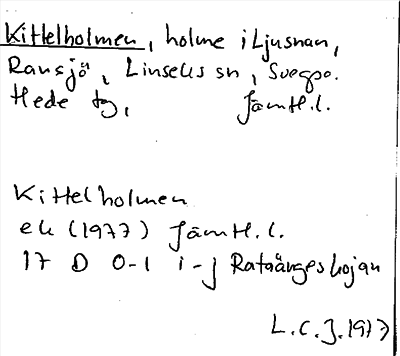 Kittelholmen, holme i Ljusnan,
Ransjö, Linsells sn, Svegs
Hede tg, Jämtl.l.
Kittelholmen
ek (1977) Jämtl.l.
17 D 0-1 i-j Rataängeskojan
L.C.J. 1977